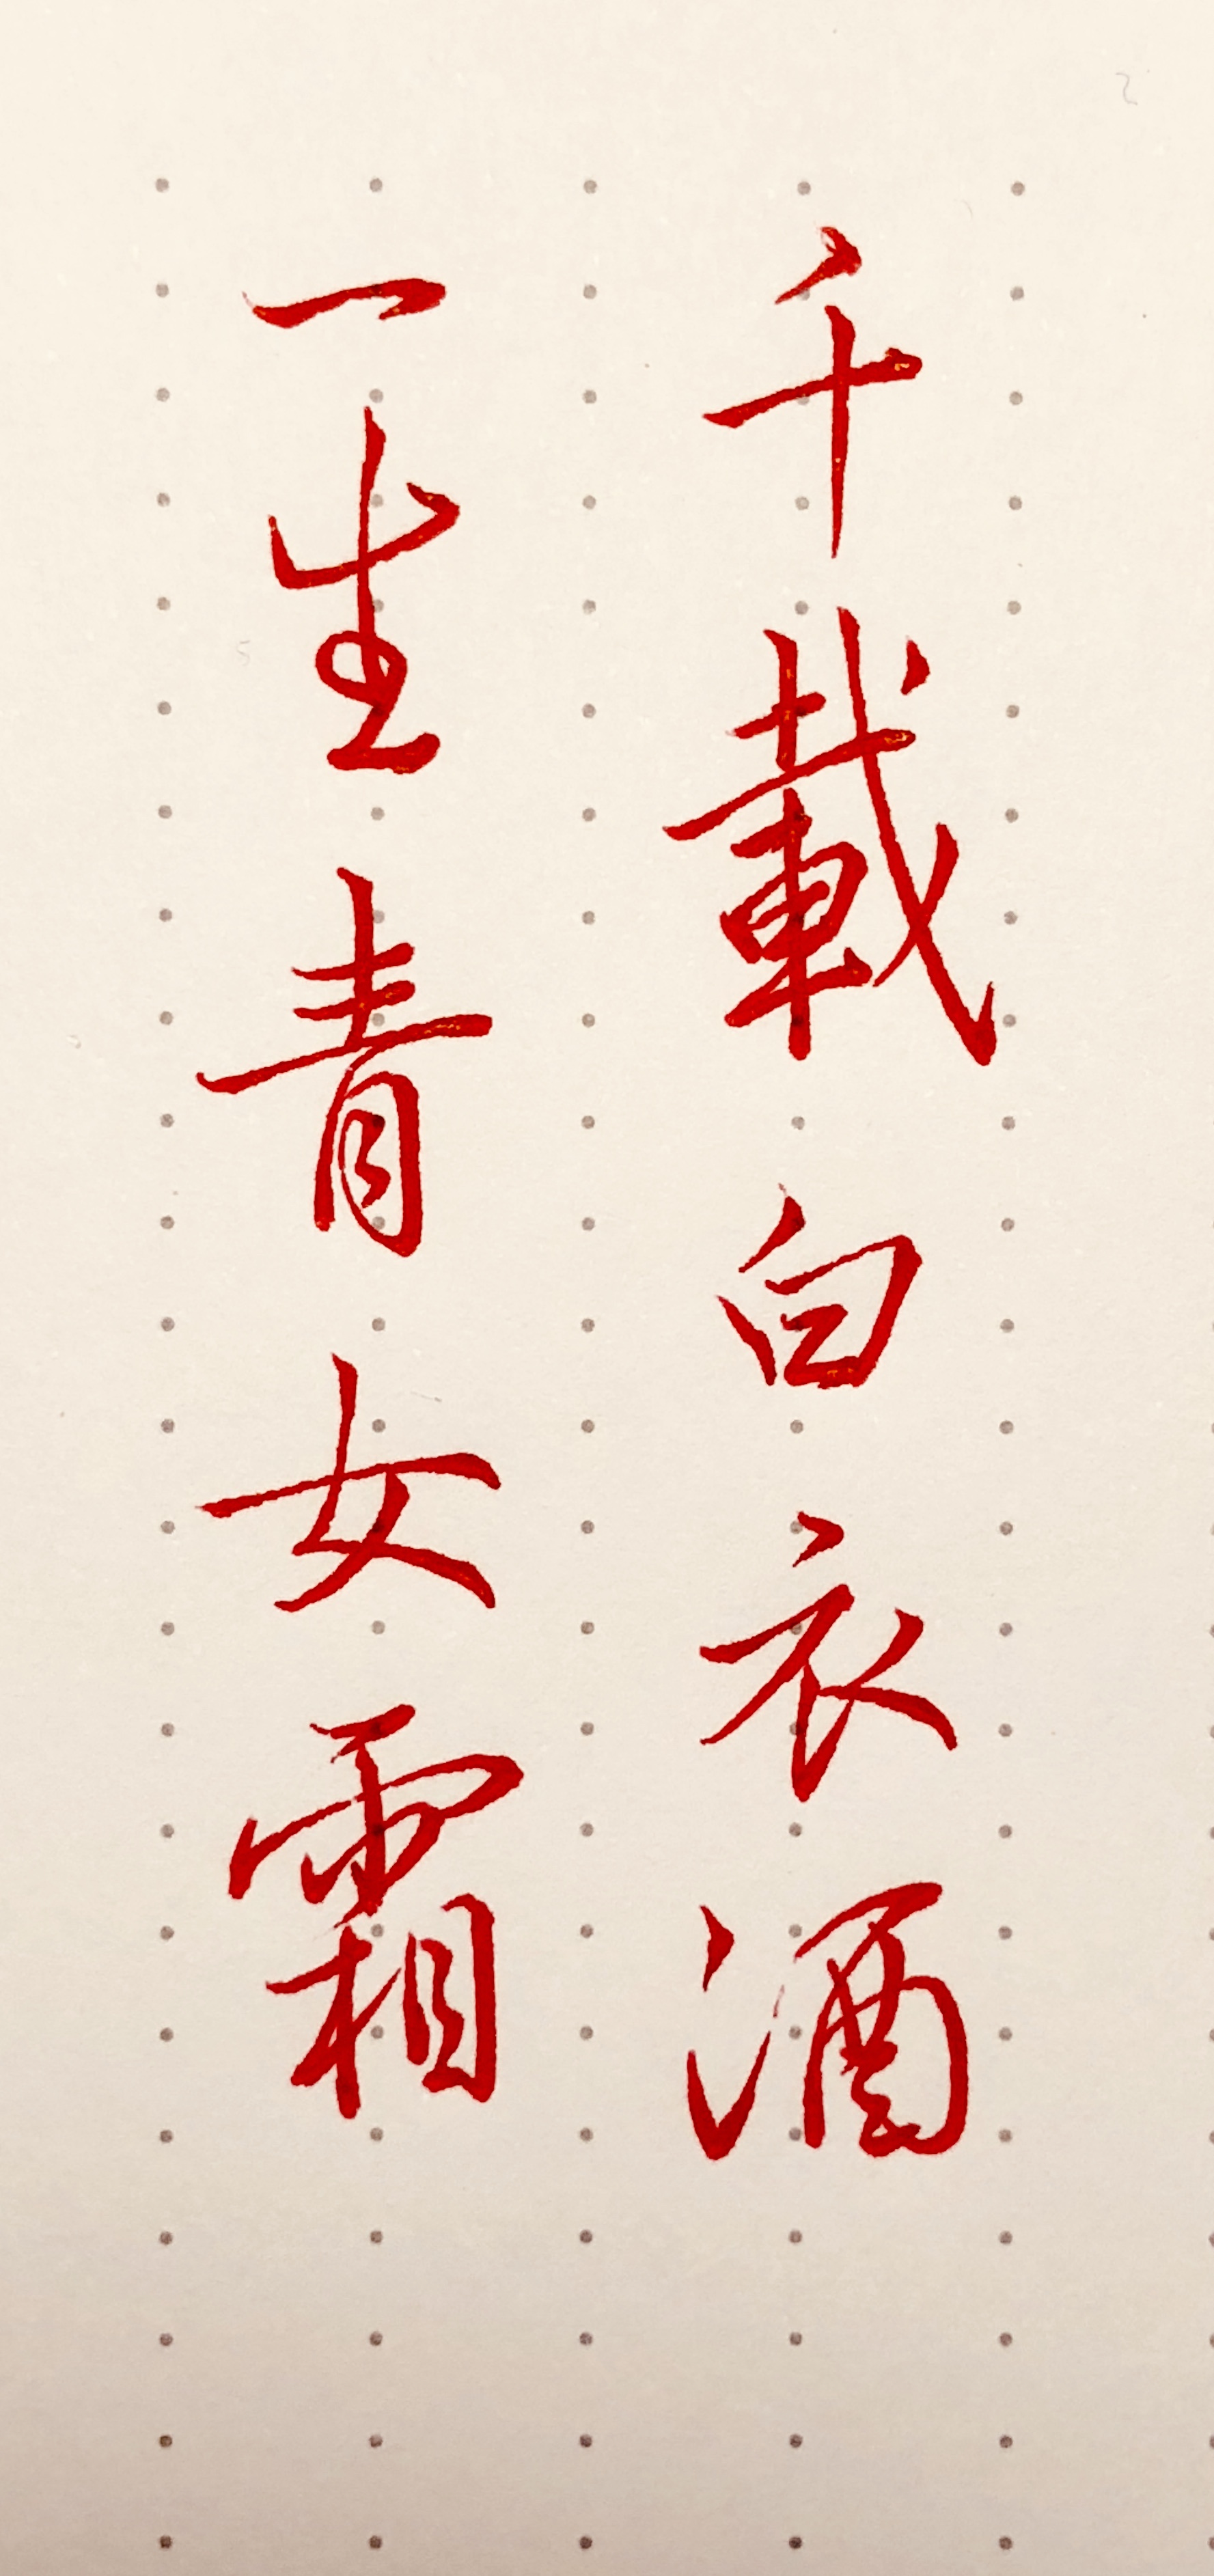 千載白衣酒
一生青女霜